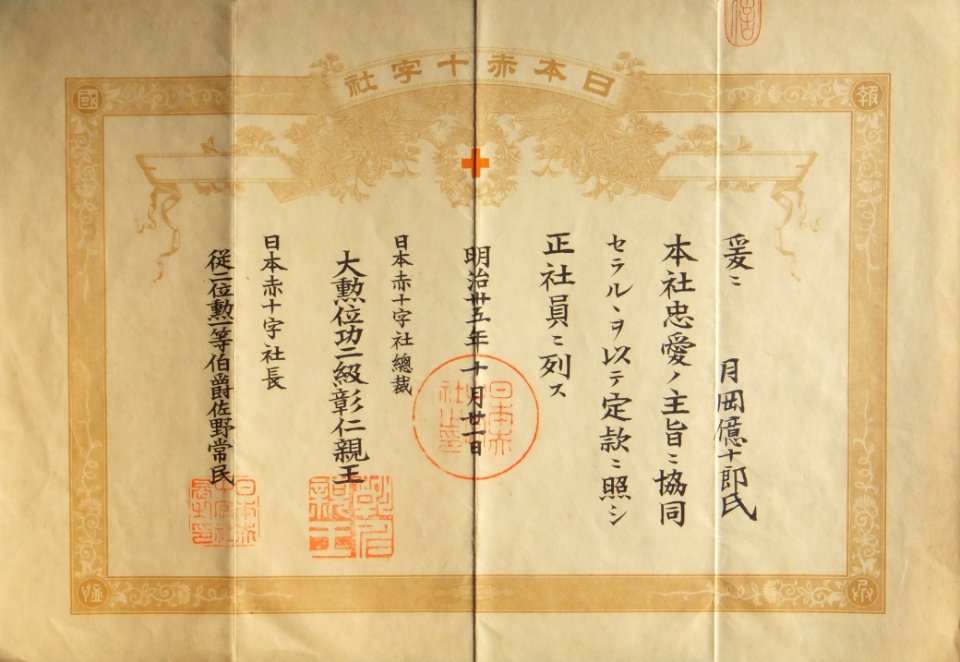 日本赤十字社
報
國
恤
兵
爰ニ
月岡億十郎氏
本社忠愛ノ主旨ニ協同
セラルヽヲ以テ定款ニ照シ
正社員ニ列ス
明治廿五年十月廿一日
日本赤十字社總裁
大勲位功二級彰仁親王
日本赤十字社長
従二位勲一等伯爵佐野常民
日本赤
社之印
彰仁
親王